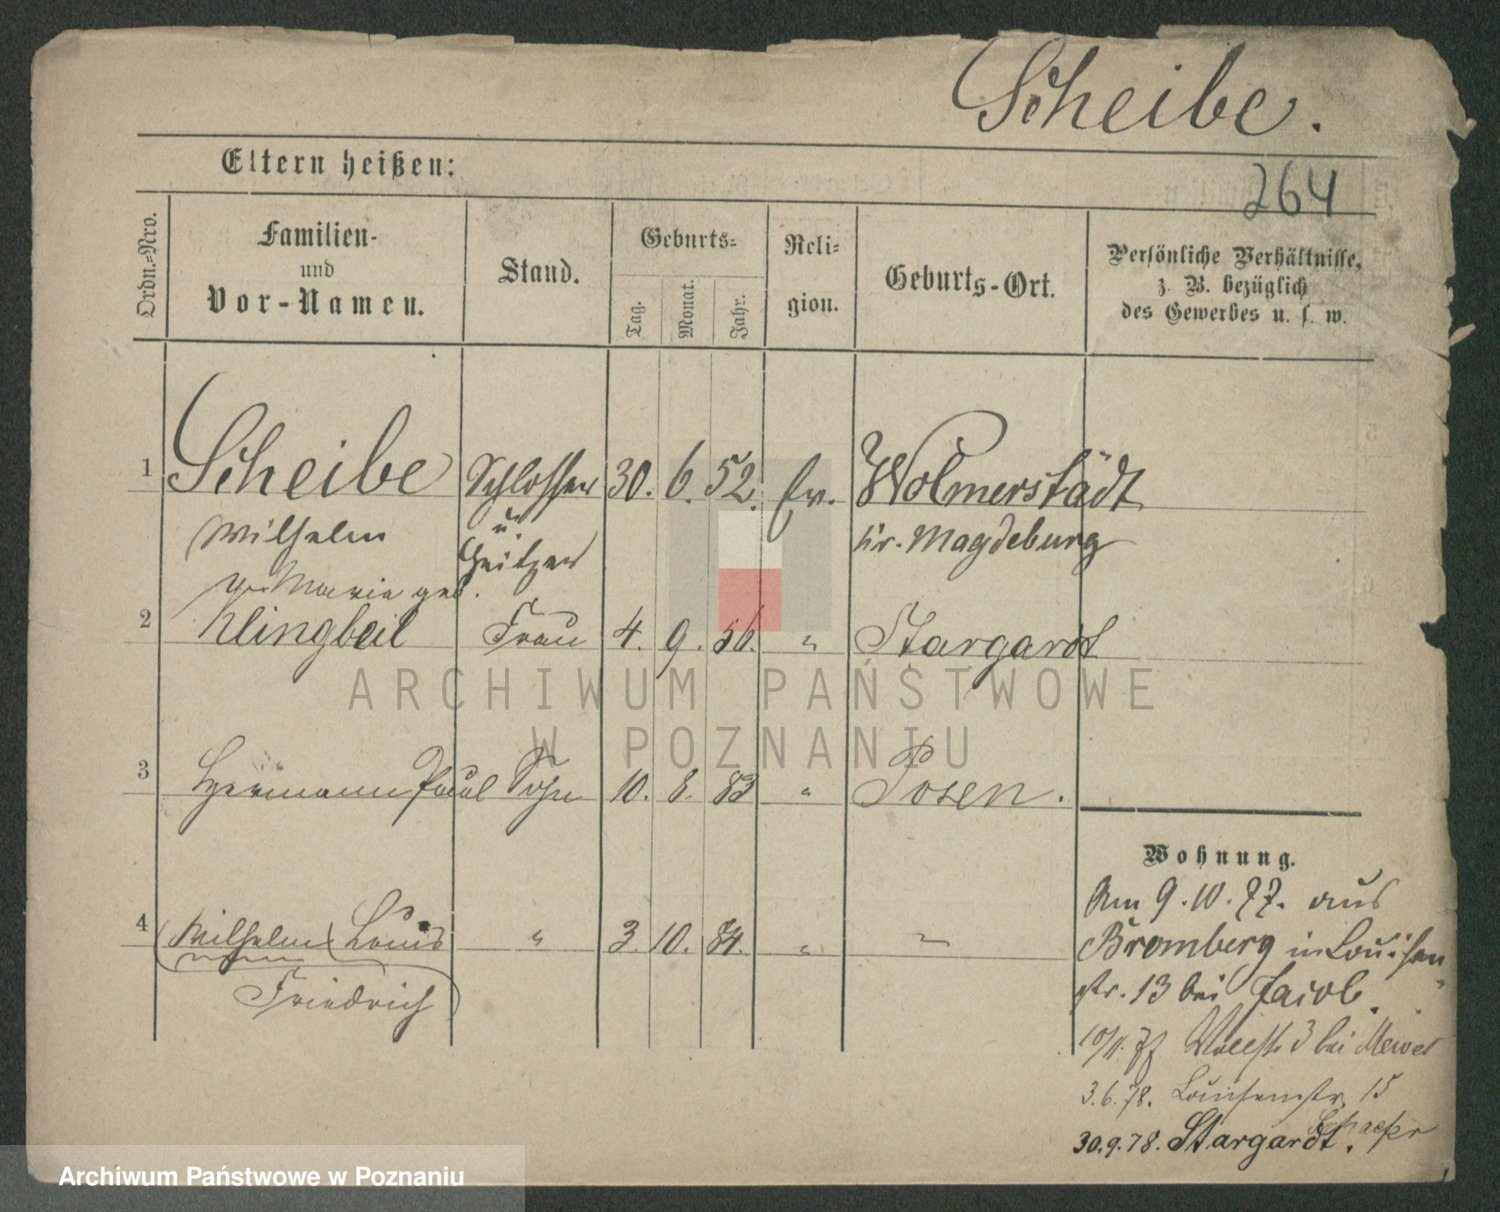 Scheibe.
Eltern heißen:
264
Ordn.-Nro.
Familien-
und
Vor-Namen.
Stand.
Geburts-
Tag.
Monat.
Jahr.
Reli-
gion.
Geburts-Ort.
Persönliche Verhältnisse,
z. B. bezüglich
des Gewerbes u. s. w.
1 Scheibe Schlosser 30. 6. 52. Ev. Wolmerstädt
Wilhelm u. Kr. Magdeburg
Heitzer
Marie geb.
2 Klingbeil Frau 4. 9. 56. " Stargardt
ARCHIWUM PAŃSTWOWE
W POZNANIU
3 Hermann Paul Sohn 10. 8. 83 " Posen.
Wohnung.
4 Wilhelm Louis " 3. 10. 84. " "
Friedrich
Am 9.10.77. aus
Bromberg in Louisen-
str. 13 bei Jacob.
10/11.77 3 bei
3.6.78. Louisenstr. 15
Schaefer
30.9.78. Stargardt.
Archiwum Państwowe w Poznaniu